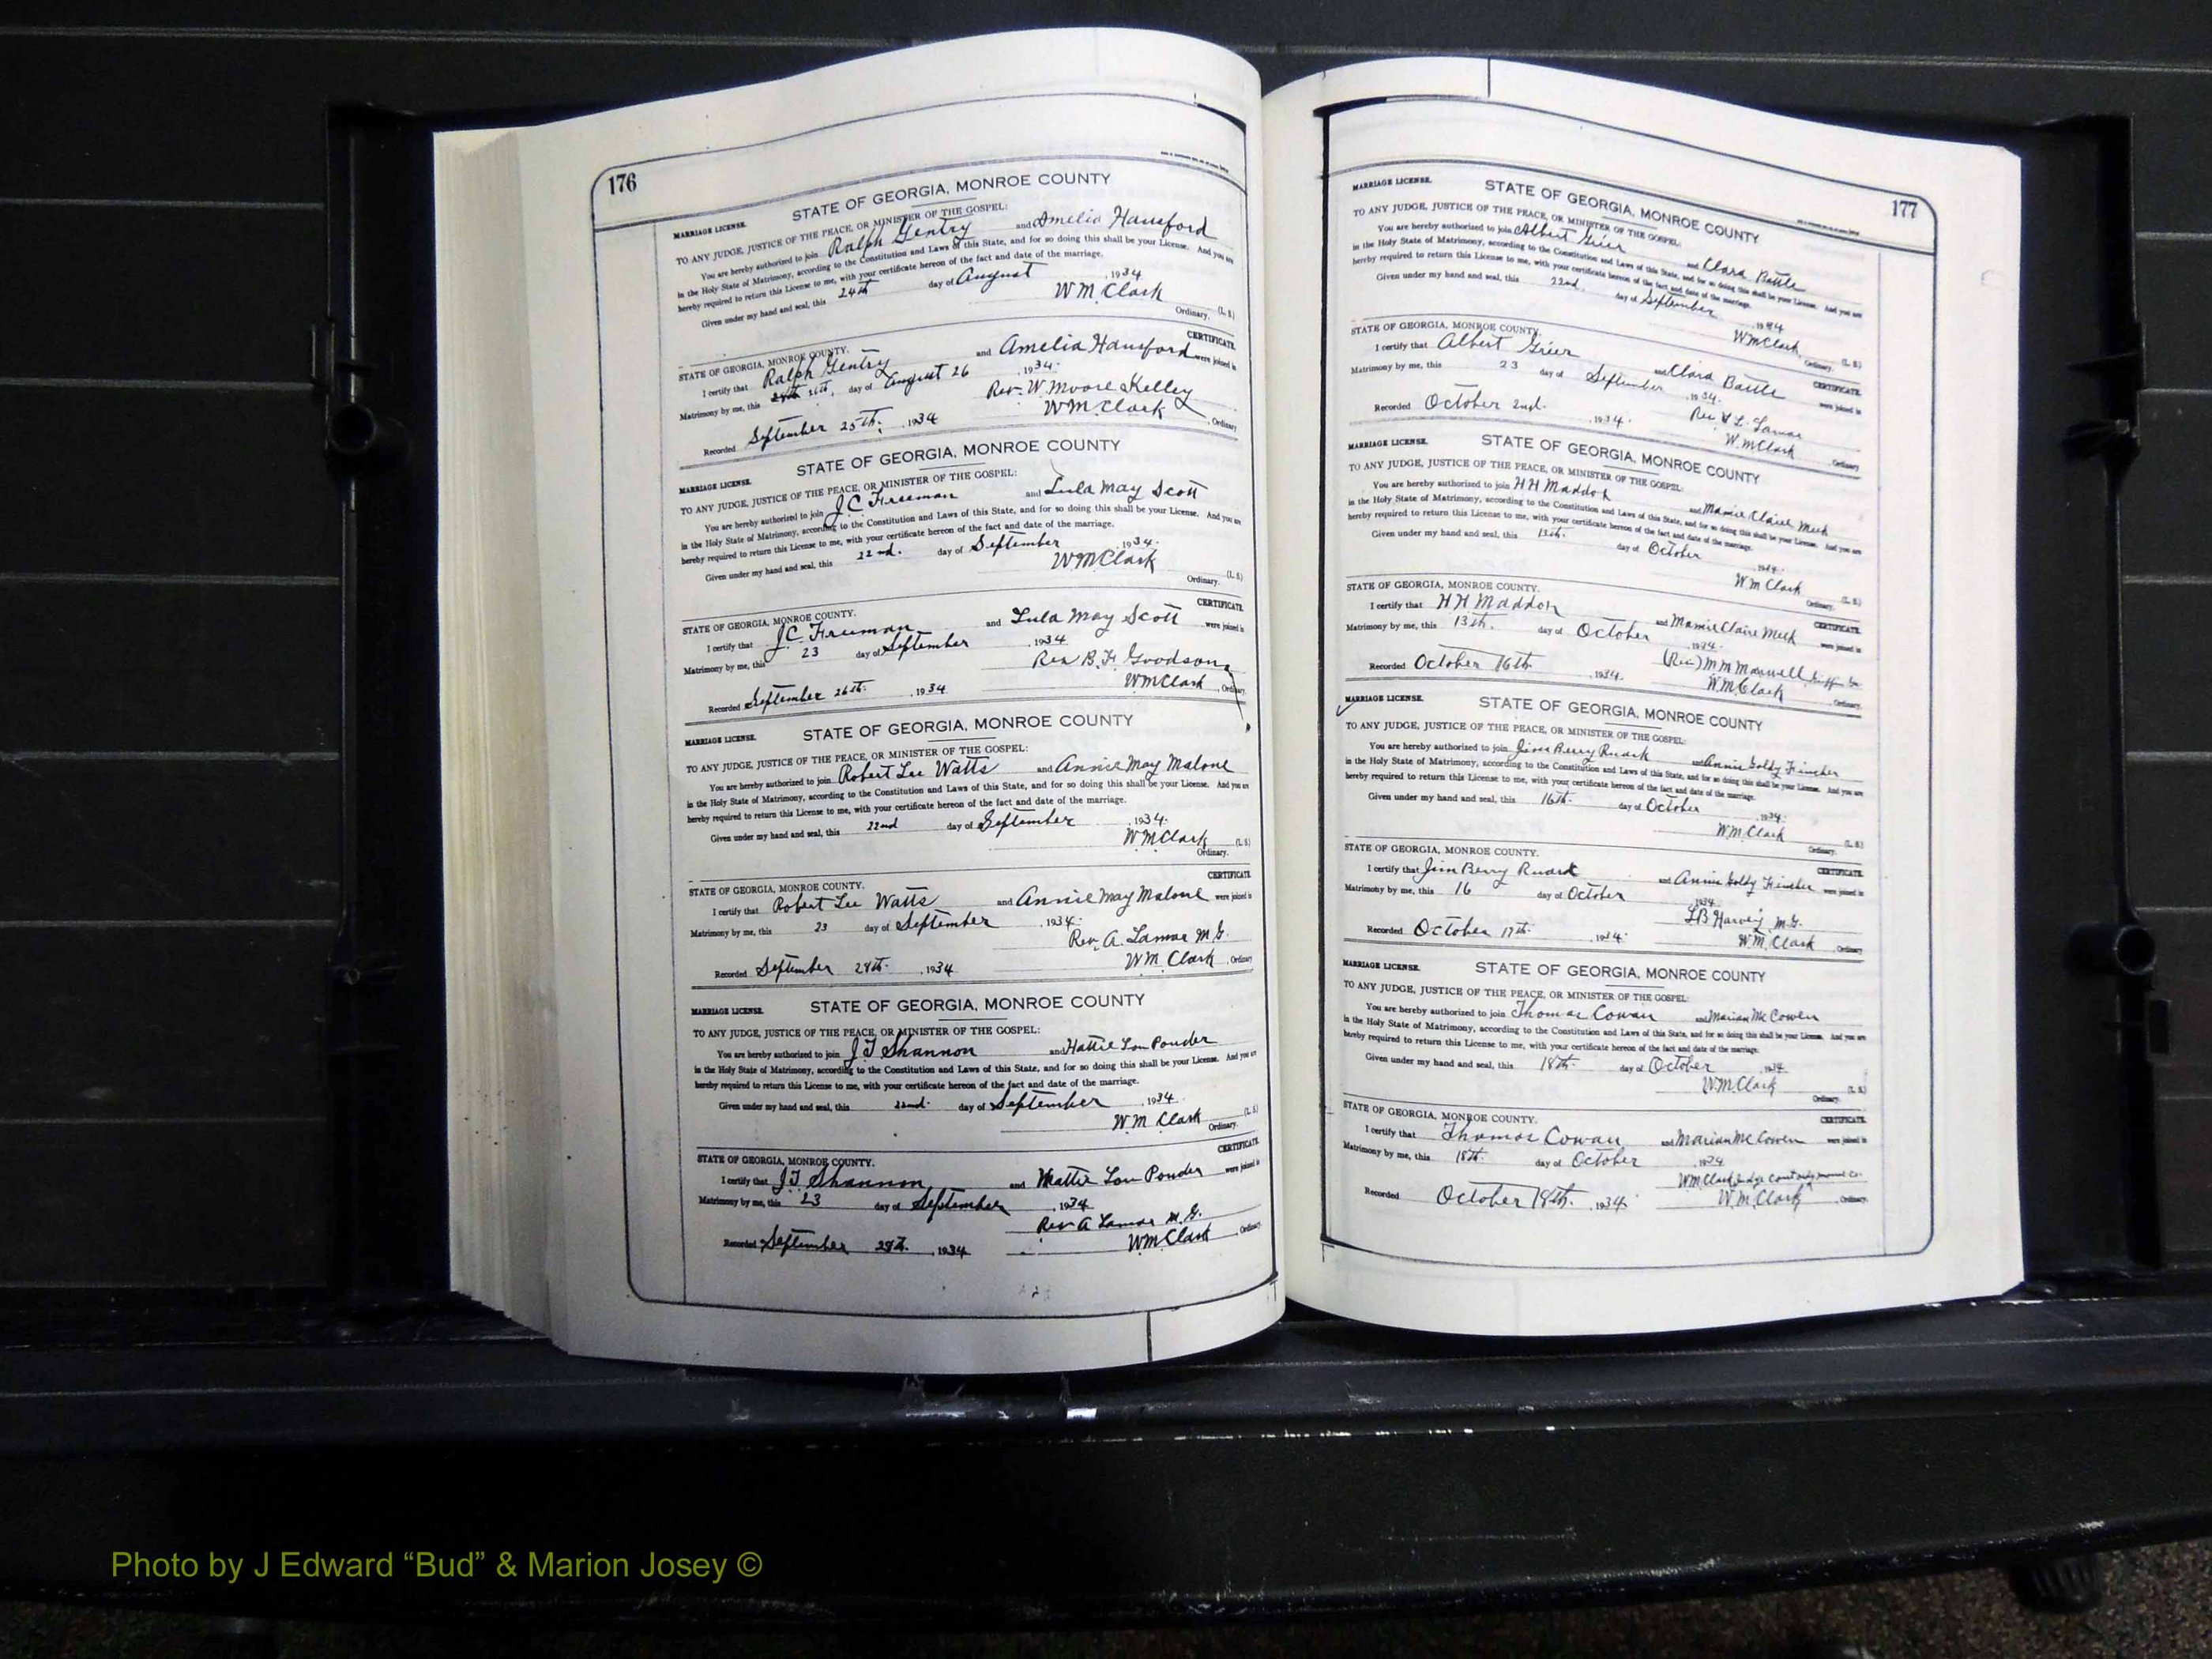 176
STATE OF GEORGIA, MONROE COUNTY
MARRIAGE LICENSE.
TO ANY JUDGE, JUSTICE OF THE PEACE, OR MINISTER OF THE GOSPEL:
You are hereby authorized to join Ralph Gentry and Amelia Hansford
in the Holy State of Matrimony, according to the Constitution and Laws of this State, and for so doing this shall be your License. And you are
hereby required to return this License to me, with your certificate hereon of the fact and date of the marriage.
Given under my hand and seal, this 24th day of August, 1934
WM. Clark (L. S.)
Ordinary.
STATE OF GEORGIA, MONROE COUNTY. CERTIFICATE.
I certify that Ralph Gentry and Amelia Hansford were joined in
Matrimony by me, this 26th, day of August 26, 1934.
Rev. W. Moore Kelley
Recorded September 25th, 1934 WM. Clark, Ordinary
STATE OF GEORGIA, MONROE COUNTY
MARRIAGE LICENSE.
TO ANY JUDGE, JUSTICE OF THE PEACE, OR MINISTER OF THE GOSPEL:
You are hereby authorized to join J C Freeman and Lula May Scott
in the Holy State of Matrimony, according to the Constitution and Laws of this State, and for so doing this shall be your License. And you are
hereby required to return this License to me, with your certificate hereon of the fact and date of the marriage.
Given under my hand and seal, this 22nd. day of September, 1934.
WM Clark (L. S.)
Ordinary.
STATE OF GEORGIA, MONROE COUNTY. CERTIFICATE.
I certify that J C Freeman and Lula May Scott were joined in
Matrimony by me, this 23 day of September, 1934
Rev B. F. Goodson
Recorded September 26th., 1934 WM Clark, Ordinary
STATE OF GEORGIA, MONROE COUNTY
MARRIAGE LICENSE.
TO ANY JUDGE, JUSTICE OF THE PEACE, OR MINISTER OF THE GOSPEL:
You are hereby authorized to join Robert Lee Watts and Annie May Malone
in the Holy State of Matrimony, according to the Constitution and Laws of this State, and for so doing this shall be your License. And you are
hereby required to return this License to me, with your certificate hereon of the fact and date of the marriage.
Given under my hand and seal, this 22nd day of September, 1934.
WM Clark (L. S.)
Ordinary.
CERTIFICATE.
STATE OF GEORGIA, MONROE COUNTY.
I certify that Robert Lee Watts and Annie May Malone were joined in
Matrimony by me, this 23 day of September, 1934.
Rev. A. Lamar M.G.
Recorded September 28th., 1934 WM. Clark, Ordinary
STATE OF GEORGIA, MONROE COUNTY
MARRIAGE LICENSE.
TO ANY JUDGE, JUSTICE OF THE PEACE, OR MINISTER OF THE GOSPEL:
You are hereby authorized to join J T Shannon and Hattie Lou Ponder
in the Holy State of Matrimony, according to the Constitution and Laws of this State, and for so doing this shall be your License. And you are
hereby required to return this License to me, with your certificate hereon of the fact and date of the marriage.
Given under my hand and seal, this 22nd. day of September, 1934.
WM Clark (L. S.)
Ordinary.
CERTIFICATE.
STATE OF GEORGIA, MONROE COUNTY.
I certify that J T Shannon and Hattie Lou Ponder were joined in
Matrimony by me, this 23 day of September, 1934
Rev A Lamar M. G.
Recorded September 28th., 1934 WM Clark, Ordinary.
177
MARRIAGE LICENSE. STATE OF GEORGIA, MONROE COUNTY
TO ANY JUDGE, JUSTICE OF THE PEACE, OR MINISTER OF THE GOSPEL:
You are hereby authorized to join Albert Grier and Clara Battle
in the Holy State of Matrimony, according to the Constitution and Laws of this State, and for so doing this shall be your License. And you are
hereby required to return this License to me, with your certificate hereon of the fact and date of the marriage.
Given under my hand and seal, this 22nd. day of September, 1934
WM Clark (L. S.)
Ordinary.
STATE OF GEORGIA, MONROE COUNTY. CERTIFICATE.
I certify that Albert Grier and Clara Battle were joined in
Matrimony by me, this 23 day of September, 1934.
Rev. Lamar
Recorded October 2nd., 1934. W.M Clark Ordinary
MARRIAGE LICENSE. STATE OF GEORGIA, MONROE COUNTY
TO ANY JUDGE, JUSTICE OF THE PEACE, OR MINISTER OF THE GOSPEL:
You are hereby authorized to join H H Maddox and Mamie Claire Meek
in the Holy State of Matrimony, according to the Constitution and Laws of this State, and for so doing this shall be your License. And you are
hereby required to return this License to me, with your certificate hereon of the fact and date of the marriage.
Given under my hand and seal, this 13th. day of October 1934.
WM Clark (L. S.)
Ordinary.
STATE OF GEORGIA, MONROE COUNTY. CERTIFICATE.
I certify that H H Maddox and Mamie Claire Meek were joined in
Matrimony by me, this 13th. day of October 1934.
(Rev.) M M Maxwell Griffin Ga
Recorded October 16th., 1934. W.M. Clark Ordinary.
MARRIAGE LICENSE. STATE OF GEORGIA, MONROE COUNTY
TO ANY JUDGE, JUSTICE OF THE PEACE, OR MINISTER OF THE GOSPEL:
You are hereby authorized to join Jim Berry Ruark and Annie Goldy Fincher
in the Holy State of Matrimony, according to the Constitution and Laws of this State, and for so doing this shall be your License. And you are
hereby required to return this License to me, with your certificate hereon of the fact and date of the marriage.
Given under my hand and seal, this 16th. day of October, 1934.
WM. Clark (L. S.)
Ordinary.
STATE OF GEORGIA, MONROE COUNTY. CERTIFICATE.
I certify that Jim Berry Ruark and Annie Goldy Fincher were joined in
Matrimony by me, this 16 day of October 1934.
Harvey M.G.
Recorded October 17th., 1934. WM. Clark, Ordinary
MARRIAGE LICENSE. STATE OF GEORGIA, MONROE COUNTY
TO ANY JUDGE, JUSTICE OF THE PEACE, OR MINISTER OF THE GOSPEL:
You are hereby authorized to join Thomas Cowan and Marian McCowen
in the Holy State of Matrimony, according to the Constitution and Laws of this State, and for so doing this shall be your License. And you are
hereby required to return this License to me, with your certificate hereon of the fact and date of the marriage.
Given under my hand and seal, this 18th. day of October 1934
WM. Clark (L. S.)
Ordinary.
STATE OF GEORGIA, MONROE COUNTY. CERTIFICATE.
I certify that Thomas Cowan and Marian McCowen were joined in
Matrimony by me, this 18th. day of October, 1934
WM. Clark, Judge Court Ordy Monroe Co.
Recorded October 18th., 1934. W.M. Clark, Ordinary.
Photo by J Edward “Bud” & Marion Josey ©